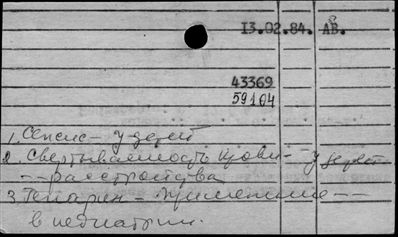 13.02.84. АВ.
43369
59104
1. Сепсис – у детей
2. Свертываемость крови – у детей
– – расстройства
3. Гепарин – применение – –
в педиатрии.